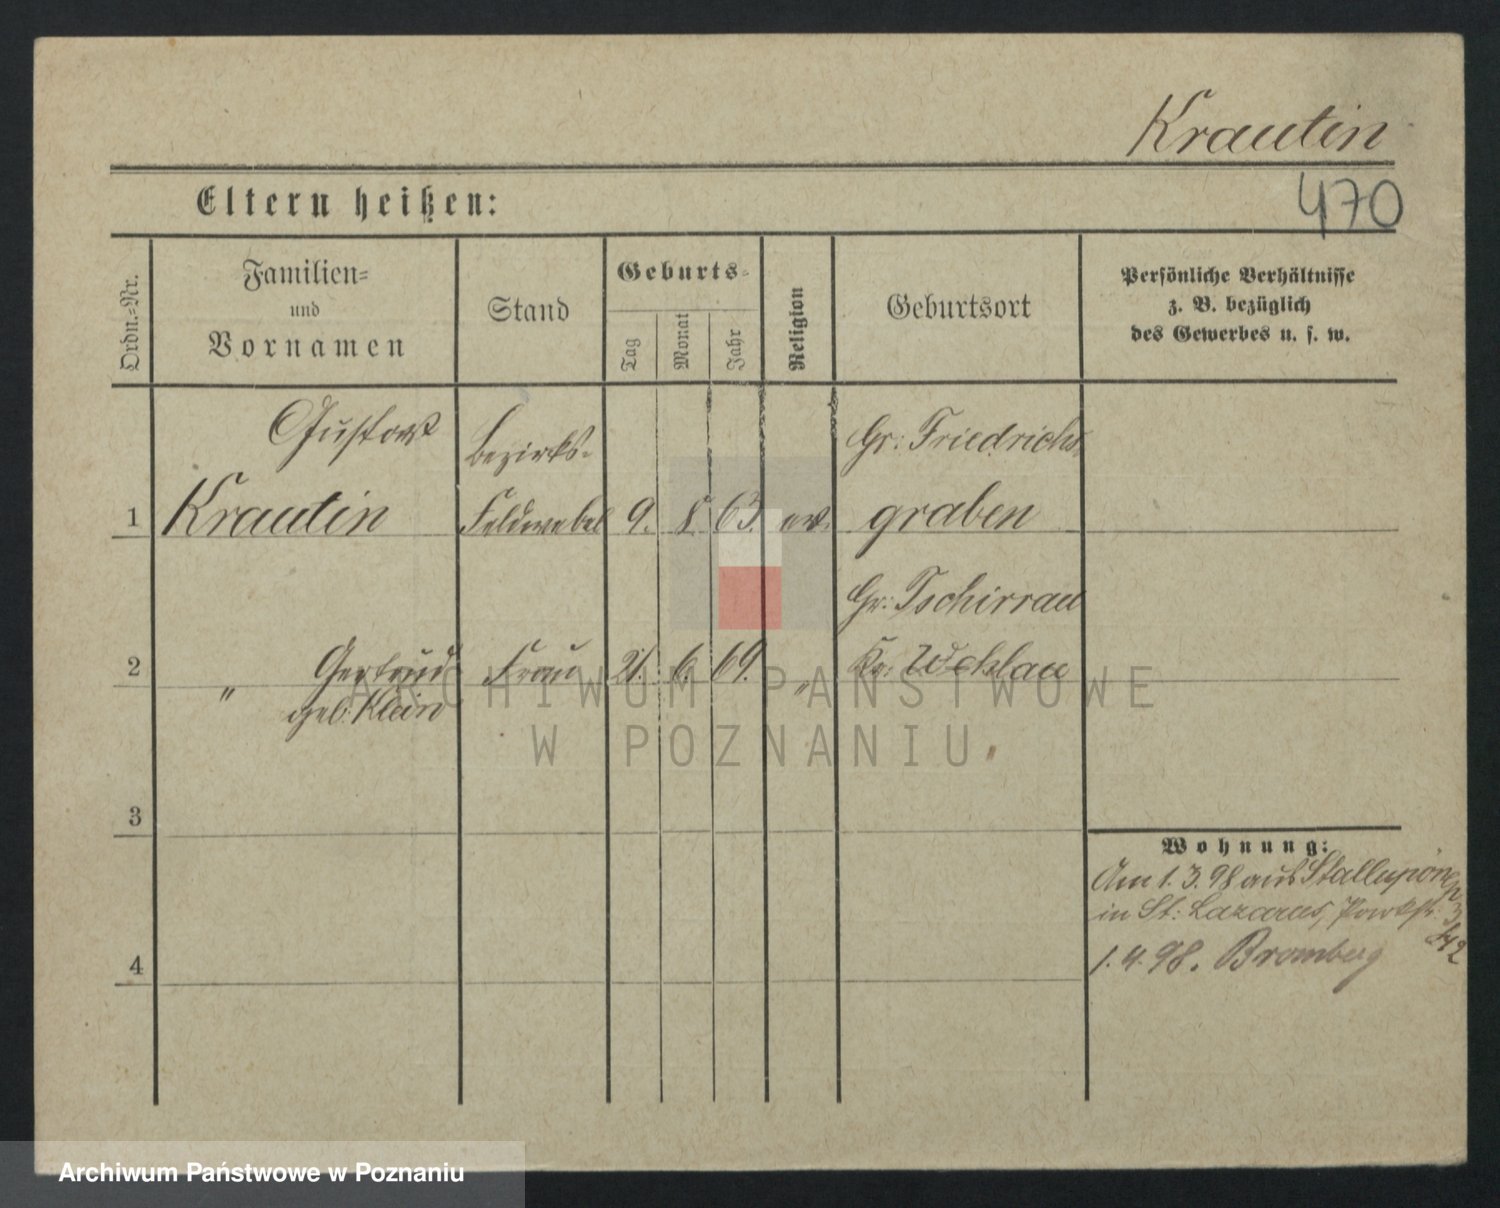 Krautin
Eltern heißen:
470
Ordn.=Nr.
Familien=
und
Vornamen
Stand
Geburts=
Tag
Monat
Jahr
Religion
Geburtsort
Persönliche Verhältnisse
z. B. bezüglich
des Gewerbes u. s. w.
Gustav
Bezirks-
Gr: Friedrichs
1 Krautin Feldwebel 9. 8. 63. ev. graben
Gr: Tschirrau
2 " Gertrud Frau 21. 6. 69. " Kr: Wehlau
geb: Klein
ARCHIWUM PAŃSTWOWE
W POZNANIU
3
Wohnung:
Am 1. 3. 98 aus Stallupönen
in St: Lazarus, Parkstr:
4
1. 4. 98. Bromberg
Archiwum Państwowe w Poznaniu